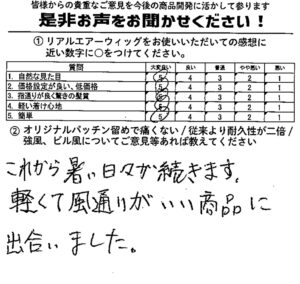 皆様からの貴重なご意見を今後の商品開発に活かして参ります
是非お声をお聞かせください！
① リアルエアーウィッグをお使いいただいての感想に
近い数字に○をつけてください。
質問 大変良い 良い 普通 やや悪い 悪い
1. 自然な見た目 5 4 3 2 1
2. 価格設定が良い、低価格 5 4 3 2 1
3. 指通りが良く驚きの髪質 5 4 3 2 1
4. 軽い着け心地 5 4 3 2 1
5. 簡単 5 4 3 2 1
② オリジナルパッチン留めで痛くない / 従来より耐久性が二倍 /
強風、ビル風についてご意見等あれば教えてください
これから暑い日々が続きます。
軽くて風通りがいい商品に
出合いました。